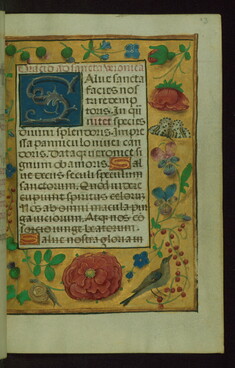 Oracio ad sanctā veronicā
Salue sancta
facies nos
tri redemp
toris In qua
nitet species
diuini splendoris. Impre
ssa panniculo niuei can
doris. Dataq; veronice si
gnum ob amoris. Sal
ue decus seculi speculum
sanctorum. Quod videre
cupiunt spiritus celorum
Nos ab omni macula pur
ga uiciorum. Atq; nos cō
sorcio iunge beatorum.
Salue nostra gloria in